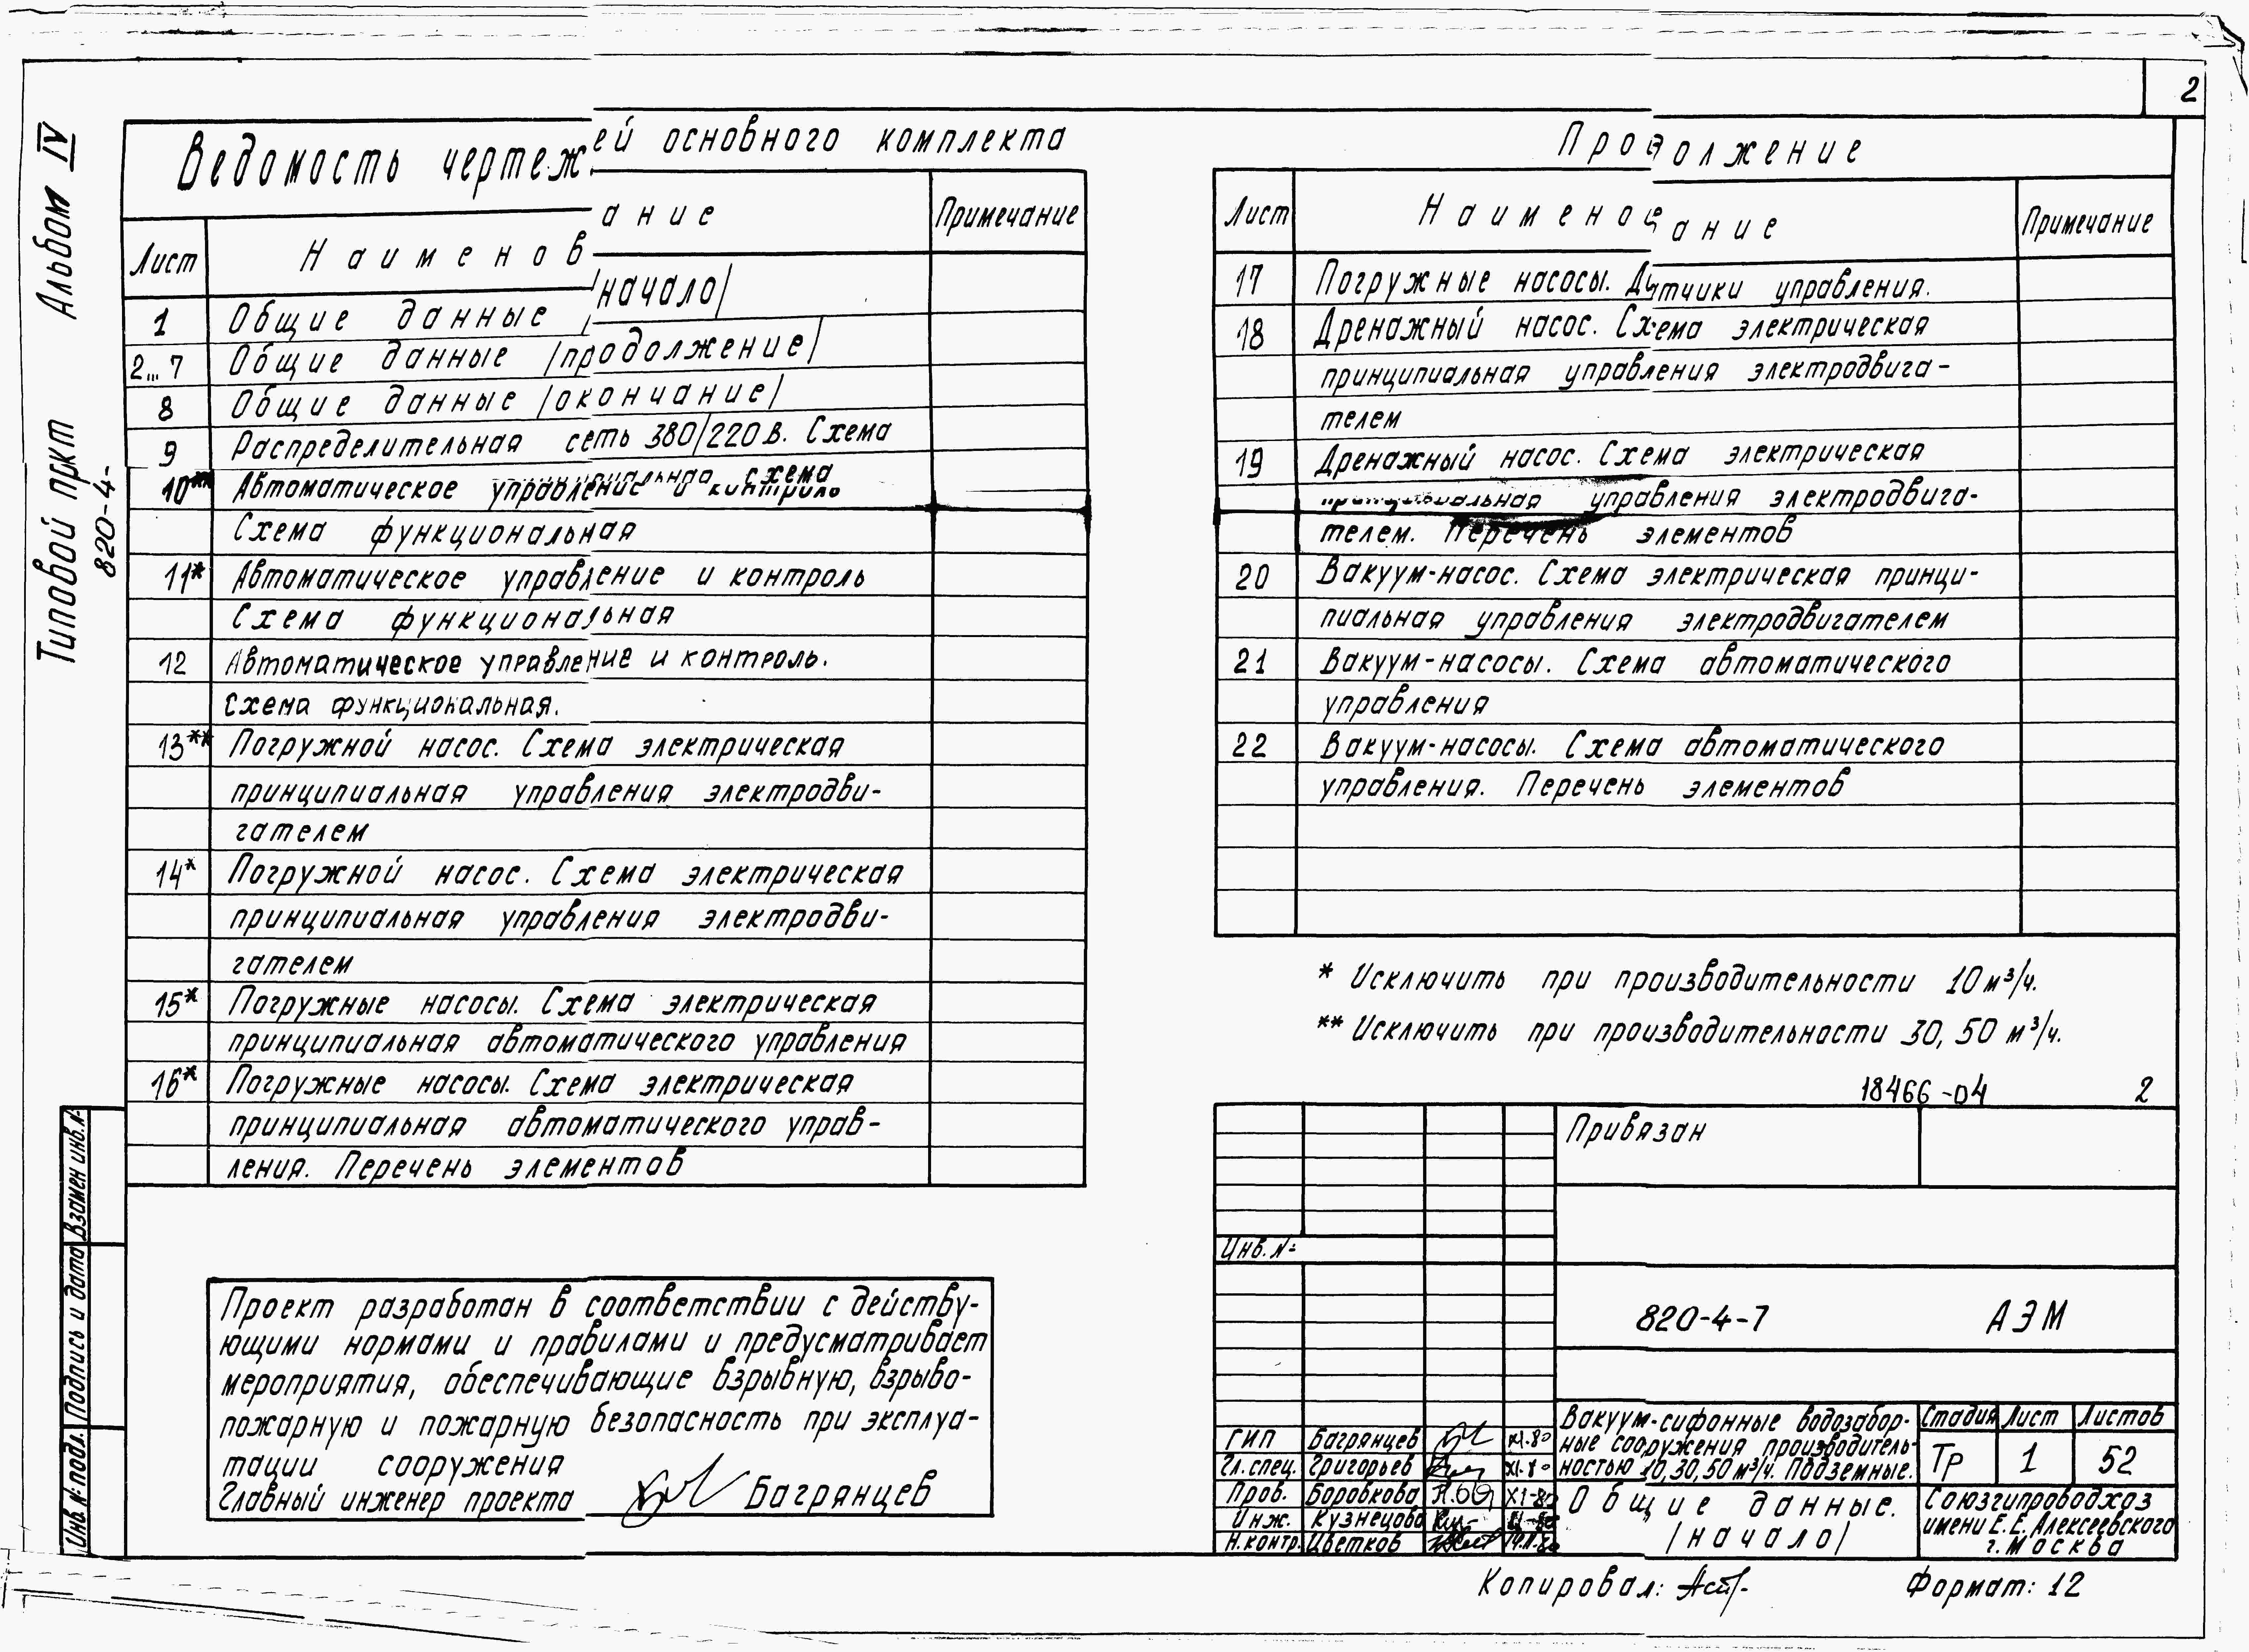 2
Альбом IV
Типовой пркт
820-4-
Ведомость чертежей основного комплекта
Лист Наименование Примечание
1 Общие данные /начало/
2...7 Общие данные /продолжение/
8 Общие данные /окончание/
9 Распределительная сеть 380/220 в. Схема
схема
10** Автоматическое управление и контроль
Схема функциональная
11* Автоматическое управление и контроль
Схема функциональная
12 Автоматическое управление и контроль.
Схема функциональная.
13** Погружной насос. Схема электрическая
принципиальная управления электродви-
гателем
14* Погружной насос. Схема электрическая
принципиальная управления электродви-
гателем
15* Погружные насосы. Схема электрическая
принципиальная автоматического управления
16* Погружные насосы. Схема электрическая
принципиальная автоматического управ-
ления. Перечень элементов
Продолжение
Лист Наименование Примечание
17 Погружные насосы. Датчики управления.
18 Дренажный насос. Схема электрическая
принципиальная управления электродвига-
телем
19 Дренажный насос. Схема электрическая
принципиальная управления электродвига-
телем. Перечень элементов
20 Вакуум-насос. Схема электрическая принци-
пиальная управления электродвигателем
21 Вакуум-насосы. Схема автоматического
управления
22 Вакуум-насосы. Схема автоматического
управления. Перечень элементов
* Исключить при производительности 10 м³/ч.
** Исключить при производительности 30, 50 м³/ч.
18466-04 2
Проект разработан в соответствии с действу-
ющими нормами и правилами и предусматривает
мероприятия, обеспечивающие взрывную, взрыво-
пожарную и пожарную безопасность при эксплуа-
тации сооружения
Главный инженер проекта Багрянцев
Взамен инв. №
Подпись и дата
Инв. № подл.
Привязан
Инв. №
820-4-7 АЭМ
ГИП Багрянцев XI.80
Гл. спец. Григорьев XI.80
Пров. Боровкова XI-80
Инж. Кузнецова XI-80
Н.контр. Цветков
Вакуум-сифонные водозабор-
ные сооружения производитель-
ностью 10, 30, 50 м³/ч. Подземные.
Стадия Лист Листов
Тр 1 52
Общие данные.
/начало/
Союзгипроводхоз
имени Е. Е. Алексеевского
г. Москва
Копировал: Формат: 12